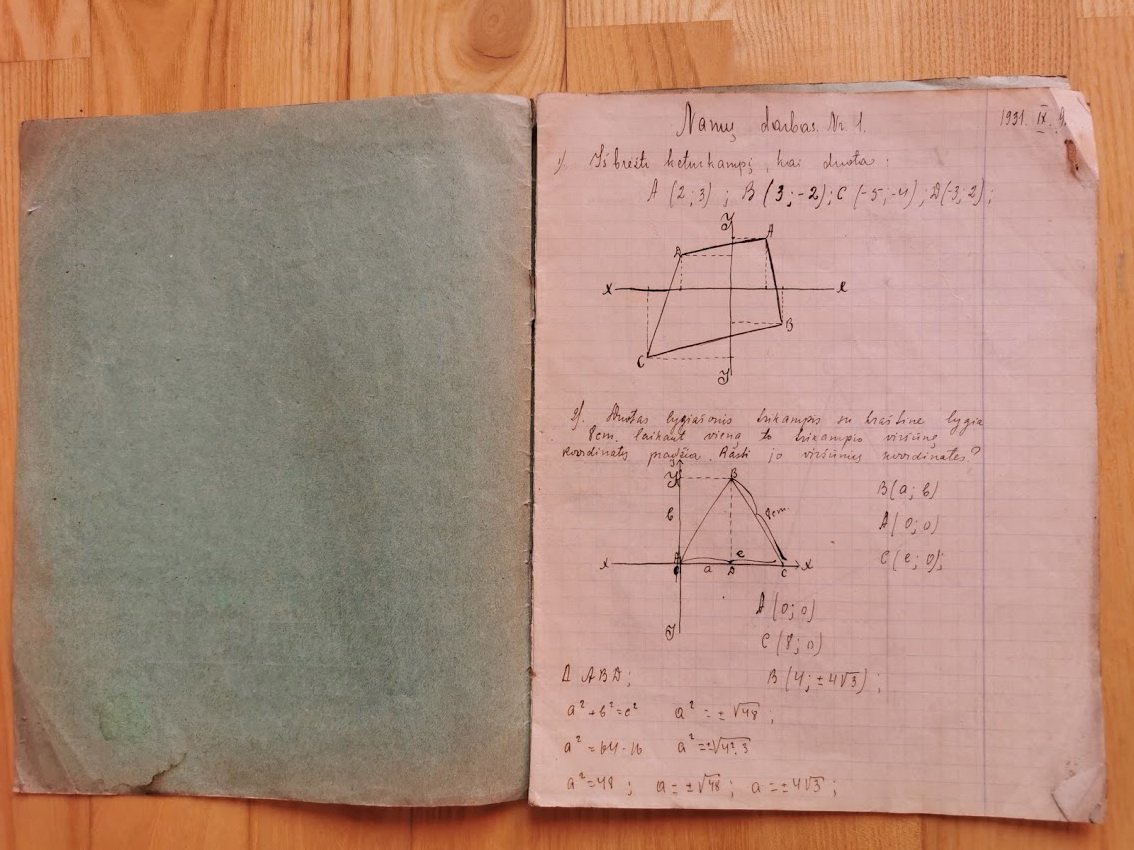 Namų darbas. Nr. 1.
1931. IX.
1). Išbrėžti keturkampį, kai duota:
A (2; 3) ; B (3; -2); C (-5; -4); D(-3; 2);
Y
A
D
X
X
B
C
Y
2). Duotas lygiašonis trikampis su kraštine lygia
8cm. laikant vieną to trikampio viršūnę
koordinatų pradžia. Rasti jo viršūnių koordinates?
Y
B
B(a; b)
b
8cm
A(0; 0)
C(c; 0);
A
c
X
a
D
C
X
A(0; 0)
Y
C(8; 0)
Δ ABD;
B(4; ±4√3);
a²+b²=c²
a²=±√48;
a²=64-16
a²=±√4²·3
a²=48; a=±√48; a=±4√3;